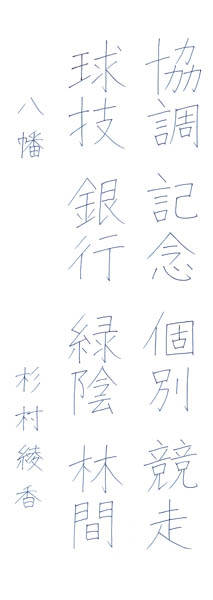 協調 記念 個別 競走
球技 銀行 緑陰 林間
八幡 杉村綾香